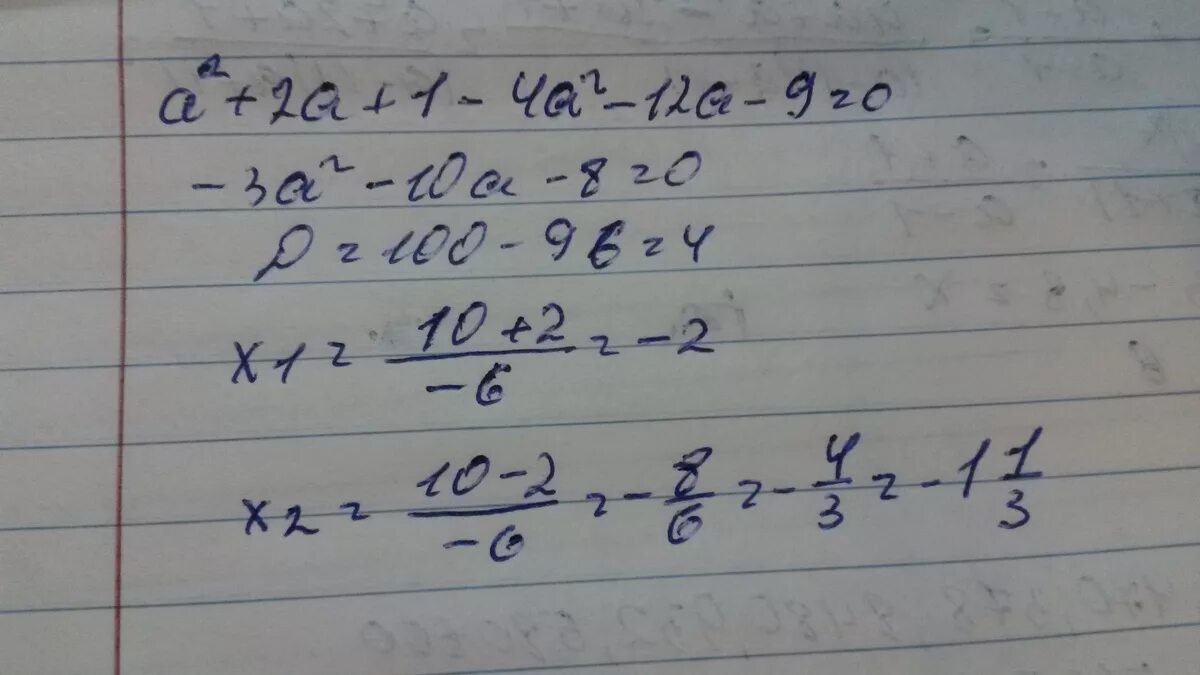 a² + 2a + 1 - 4a² - 12a - 9 = 0
-3a² - 10a - 8 = 0
D = 100 - 96 = 4
x1 = (10 + 2)/(-6) = -2
x2 = (10 - 2)/(-6) = -8/6 = -4/3 = -1 1/3